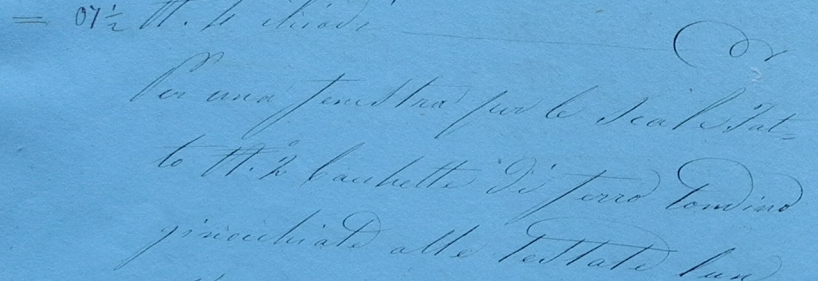 = 07½ N. 4 chiodi
Per una fenestra per le scale fat=
to N. 2 bachette di ferro tondino
ginochiate alle testate lun